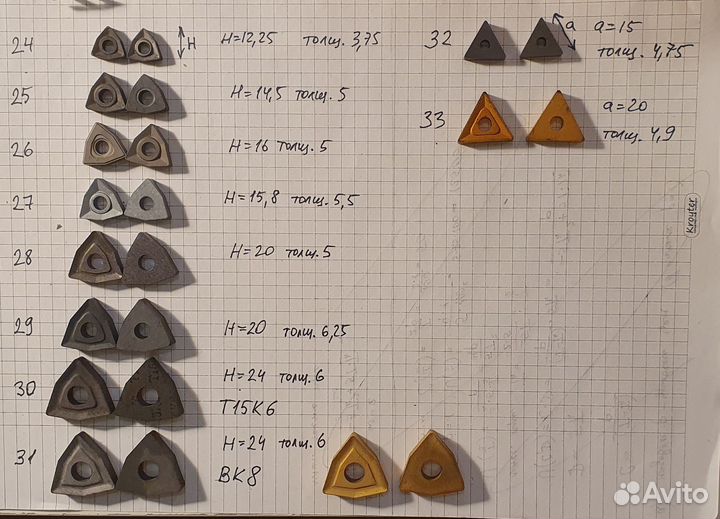 24 H H=12,25 толщ. 3,75
25 H=14,5 толщ. 5
26 H=16 толщ. 5
27 H=15,8 толщ. 5,5
28 H=20 толщ. 5
29 H=20 толщ. 6,25
30 H=24 толщ. 6
T15K6
31 H=24 толщ. 6
ВК8
32 a a=15
толщ. 4,75
33 a=20
толщ. 4,9
Kroyter
Avito